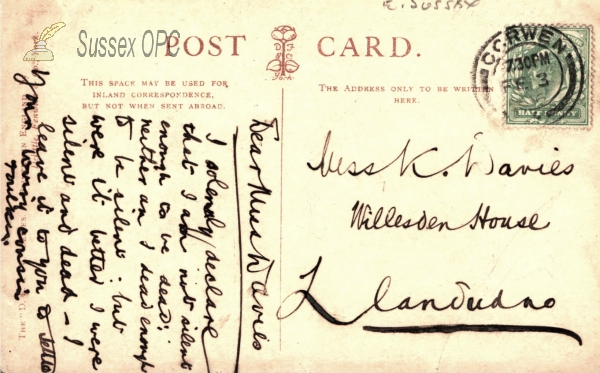 E. SUSSEX
Sussex OPC
POST CARD.
THIS SPACE MAY BE USED FOR
INLAND CORRESPONDENCE,
BUT NOT WHEN SENT ABROAD.
THE ADDRESS ONLY TO BE WRITTEN
HERE.
CORWEN
7 30 PM
HALFPENNY
Dear Miss Davies
I solemnly declare
that I am not silent
enough to be dead;
neither am I dead enough
to be silent: but
were it better I were
silent and dead - I
leave it to you to settle
Your loving cousin
Miss K. Davies
Willesden House
Llandudno
THE "D